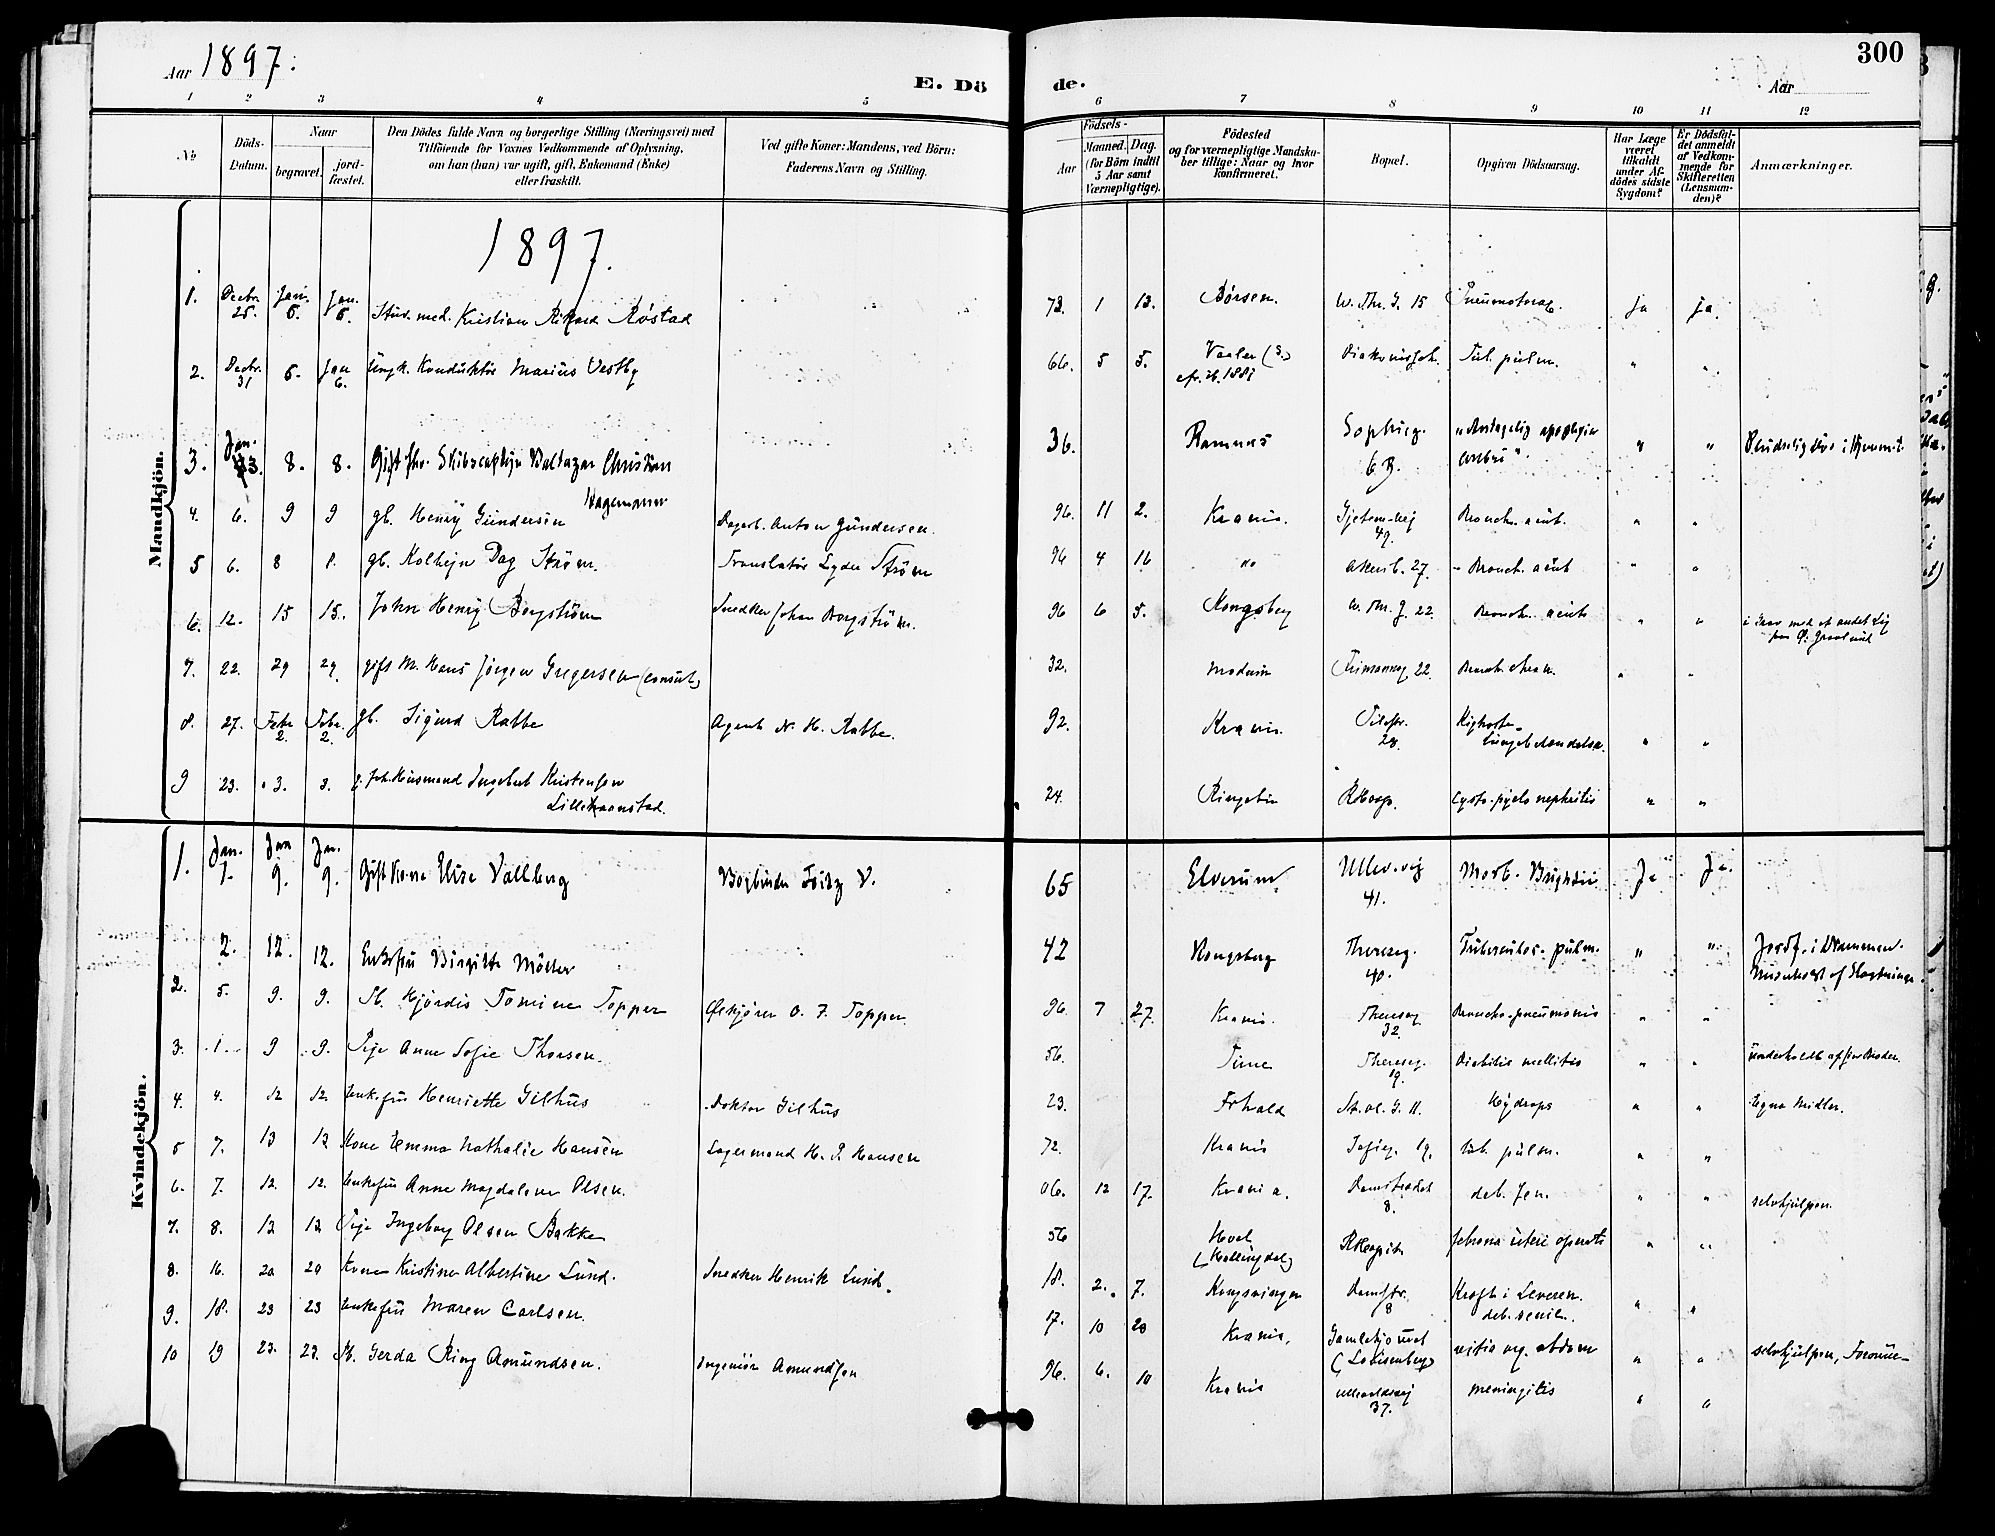 Aar 1897.
E. Dö
de.
300
Aar
1 2 3 4 5 6 7 8 9 10 11 12
No
Döds-
Datum.
Naar
begravet.
jord-
fæstet.
Den Dödes fulde Navn og borgerlige Stilling (Næringsvei) med
Tilföiende for Voxnes Vedkommende af Oplysning,
om han (hun) var ugift, gift, Enkemand (Enke)
eller fraskilt.
Ved gifte Koner: Mandens, ved Börn:
Faderens Navn og Stilling.
Födsels-
Aar
Maaned. Dag.
(for Börn indtil
5 Aar samt
Værnepligtige).
Födested
og for værnepligtige Mandska-
ber tillige: Naar og hvor
konfirmeret.
Bopæl.
Opgiven Dödsaarsag.
Har Læge
været
tilkaldt
under Af-
dödes sidste
Sygdom?
Er Dödsfal-
det anmeldt
af Vedkom-
mende for
Skifteretten
(Lensman-
den)?
Anmærkninger.
Mandkjön.
1897.
1. Decbr. 25. Jan. 5. Jan. 5. Stud. med. Kristian Rikard Røstad 73. 1 13. Børsen. W. Thr. G. 15 Ja ja.
2. Decbr. 31 5. Jan 6. Ungk. Konduktör Marius Vestby 66. 5 5. Vaaler Diakonisseh. Tub. pulm. " "
3. Jan. 3. 8. 8. Gift fhv. Skibscaptejn Baltazar Christian
Hagemann 36. Ramnæs Sophieg. 6 B. " "
4. 6. 9 9 gb. Henrÿ Gundersen Anton Gundersen. 96. 11 2. Krania. 49. Bronch. acut. " "
5 6. 8 8. gb. Kolbejn Dag Strøm. Translatör Lyder Strøm 96 4 16 do Akersb. 27. Bronch. acut " "
6. 12. 15 15. John Henry Borgström Snedker Johan Borgström. 96 6 5. Kongsberg W. Thr. G. 22. Bronch. acut " " i Grav med et andet Lig
7. 22. 29 29. gift M. Hans Jørgen Gregersen (consul) 32. Modum 22. Bronch. chron. " "
8. 27. Febr 2. Febr. 2. gb. Sigurd Rabbe Agent N. H. Rabbe. 92. Krania. Pilestr. 28. Kighoste
Lungebetændelse. " "
9 23. 3. 3. Husmand Ingebret Kristensen
Lillekvanstad. 24. Ringebu RHosp. Cysto-pyelo nephritis " "
Kvindekjön.
1. Jan. 7. Jan 9. Jan. 9. Gift Kone Elise Vallberg Bogbinder Fritz V. 65 Elverum. Ullev. vej 41. Morb. Brightii Ja Ja.
2. 12. 12. Enkefru Birgitte Möller 42 Kongsberg Thereseg. 40. Tuberculos. pulm. " " Jordf. i Drammen.
2. 5. 9. 9. Hjördis Tomine Topper O. F. Topper 96. 7 27. Krania. Thereseg 32. Broncho-pneumonia " "
3. 1. 9 9. Pige Anne Sofie Thorsen. 56. Time Thereseg. 19. Diabetes mellitis " " underholdt af sin Broder.
4. 4. 12 12. Enkefru Henriette Gilhus Doktor Gilhus 23. Frhald St. Ol. G. 11. Hydrops " " Egne Midler.
5 7. 13 13 Kone Emma Nathalie Hansen Lagermand H. P. Hansen 72. Krania Sofieg. 19. tub. pulm. " "
6. 7. 12. 12. Enkefru Anne Magdalene Olsen. 06. 12 17. Krania. Damstredet 8. deb. sen. " " selvhjulpen.
7. 8. 13 13 Pige Ingeborg Olsen Bakke 56 Hoel
(Hallingdal) uteri " "
8. 16. 20 20 Kone Kristine Albertine Lund. Snedker Henrik Lund. 18. 2. 7. Kongsvinger Damstr. 8 Kræft i Leveren.
deb. senil. " "
9. 18. 23 23 Enkefru Maren Carlsen. 17. 10 20 Krania.
(Lovisenberg) vitia org. abdom " " selvhjulpen,
10 19 23. 23. Gerda Ring Amundsen. Ingeniör Amundsen 96. 6. 10 Krania Ullevoldsvej
37. meningitis " "